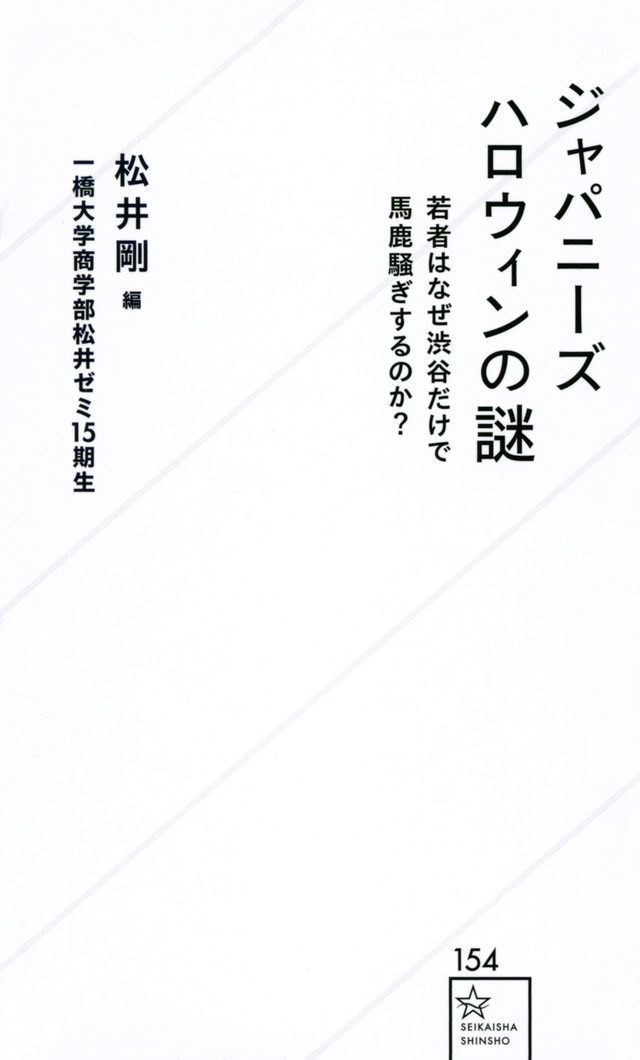 ジャパニーズ
ハロウィンの謎
若者はなぜ渋谷だけで
馬鹿騒ぎするのか？
松井剛 編
一橋大学商学部松井ゼミ15期生
154
SEIKAISHA
SHINSHO